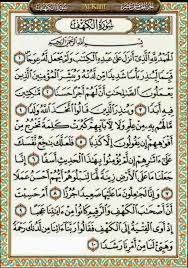 Al-Kahf
سُورَةُ الكَهْفِ
بِسْمِ ٱللَّهِ ٱلرَّحْمَٰنِ ٱلرَّحِيمِ
ٱلْحَمْدُ لِلَّهِ ٱلَّذِىٓ أَنزَلَ عَلَىٰ عَبْدِهِ ٱلْكِتَٰبَ وَلَمْ يَجْعَل لَّهُۥ عِوَجَا ۜ ١
قَيِّمًا لِّيُنذِرَ بَأْسًا شَدِيدًا مِّن لَّدُنْهُ وَيُبَشِّرَ ٱلْمُؤْمِنِينَ ٱلَّذِينَ
يَعْمَلُونَ ٱلصَّٰلِحَٰتِ أَنَّ لَهُمْ أَجْرًا حَسَنًا ٢ مَّٰكِثِينَ
فِيهِ أَبَدًا ٣ وَيُنذِرَ ٱلَّذِينَ قَالُوا۟ ٱتَّخَذَ ٱللَّهُ وَلَدًا ٤
مَّا لَهُم بِهِۦ مِنْ عِلْمٍ وَلَا لِءَابَآئِهِمْ ۚ كَبُرَتْ كَلِمَةً تَخْرُجُ مِنْ
أَفْوَٰهِهِمْ ۚ إِن يَقُولُونَ إِلَّا كَذِبًا ٥ فَلَعَلَّكَ بَٰخِعٌ نَّفْسَكَ
عَلَىٰٓ ءَاثَٰرِهِمْ إِن لَّمْ يُؤْمِنُوا۟ بِهَٰذَا ٱلْحَدِيثِ أَسَفًا ٦
إِنَّا جَعَلْنَا مَا عَلَى ٱلْأَرْضِ زِينَةً لَّهَا لِنَبْلُوَهُمْ أَيُّهُمْ أَحْسَنُ عَمَلًا ٧
وَإِنَّا لَجَٰعِلُونَ مَا عَلَيْهَا صَعِيدًا جُرُزًا ٨ أَمْ حَسِبْتَ
أَنَّ أَصْحَٰبَ ٱلْكَهْفِ وَٱلرَّقِيمِ كَانُوا۟ مِنْ ءَايَٰتِنَا عَجَبًا ٩
إِذْ أَوَى ٱلْفِتْيَةُ إِلَى ٱلْكَهْفِ فَقَالُوا۟ رَبَّنَآ ءَاتِنَا مِن لَّدُنكَ رَحْمَةً
وَهَيِّئْ لَنَا مِنْ أَمْرِنَا رَشَدًا ١٠